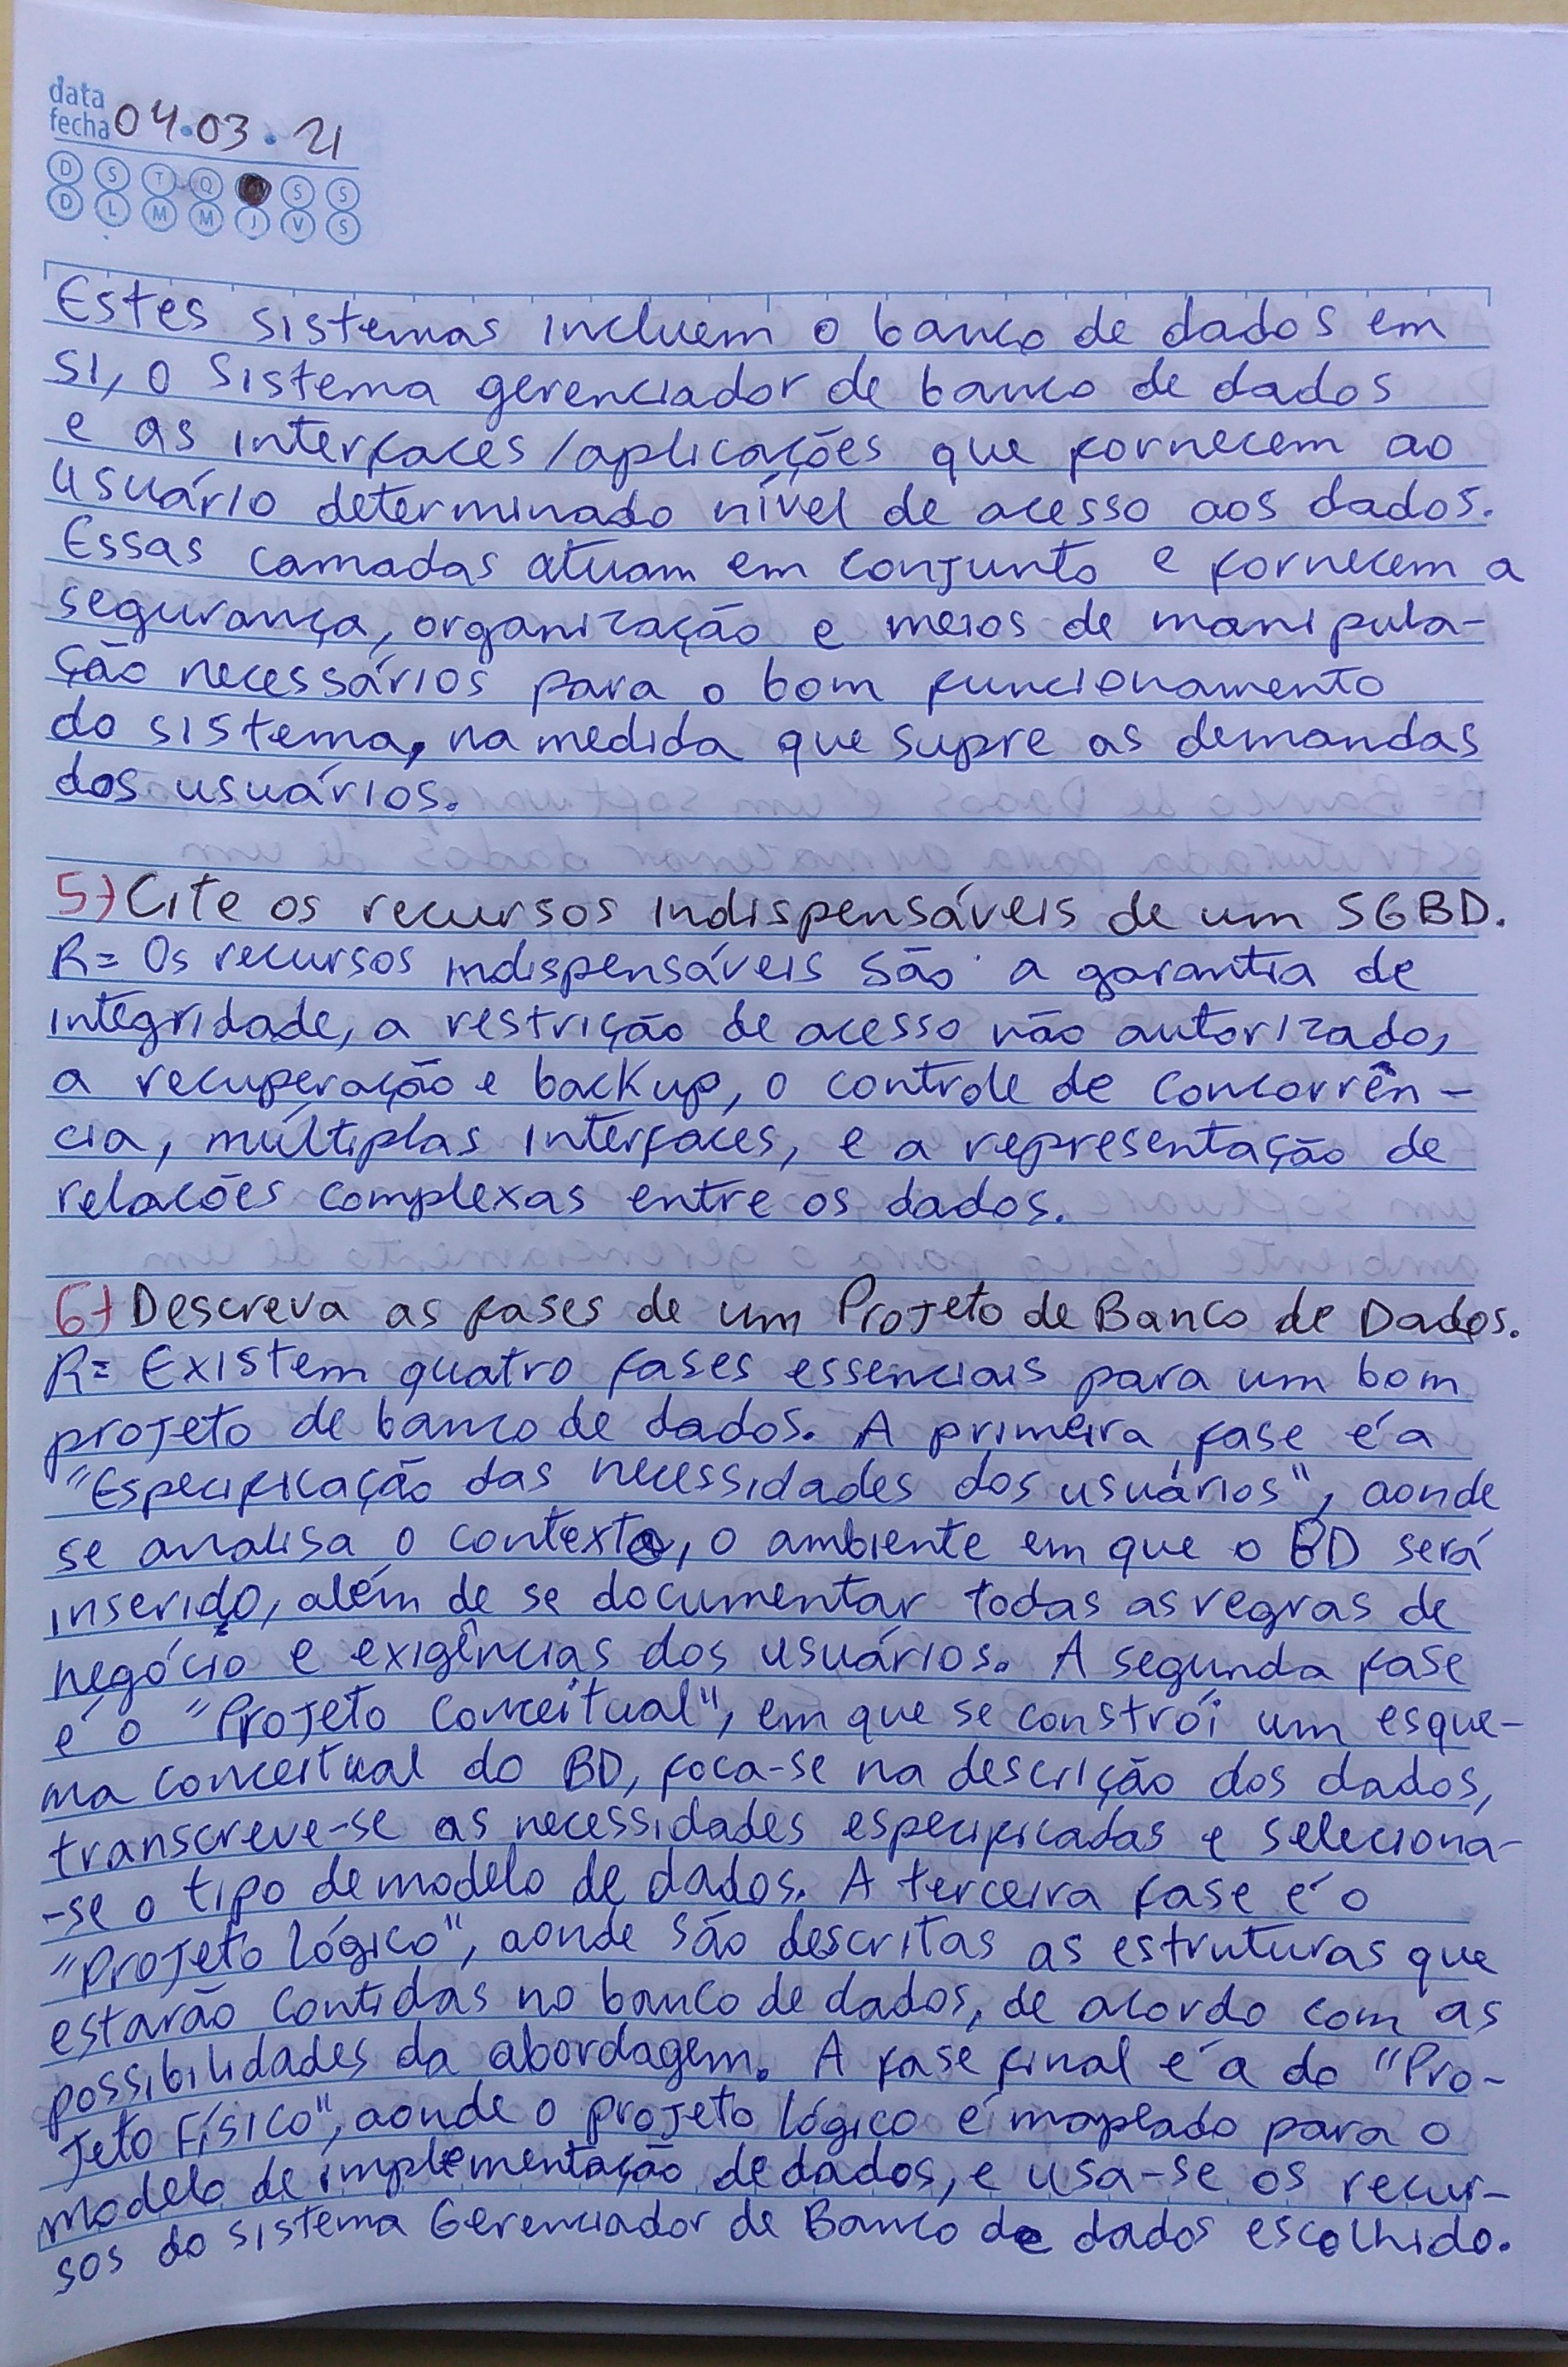 data
fecha 04.03.21
D S T Q S S
D L M M J V S
Estes sistemas incluem o banco de dados em
si, o sistema gerenciador de banco de dados
e as interfaces/aplicações que fornecem ao
usuário determinado nível de acesso aos dados.
Essas camadas atuam em conjunto e fornecem a
segurança, organização e meios de manipula-
ção necessários para o bom funcionamento
do sistema, na medida que supre as demandas
dos usuários.
5) Cite os recursos indispensáveis de um SGBD.
R= Os recursos indispensáveis são a garantia de
integridade, a restrição de acesso não autorizado,
a recuperação e backup, o controle de concorrên-
cia, múltiplas interfaces, e a representação de
relacões complexas entre os dados.
6) Descreva as fases de um Projeto de Banco de Dados.
R= Existem quatro fases essenciais para um bom
projeto de banco de dados. A primeira fase é a
"Especificação das necessidades dos usuários", aonde
se analisa o contexto, o ambiente em que o BD será
inserido, além de se documentar todas as regras de
negócio e exigências dos usuários. A segunda fase
é o "Projeto Conceitual", em que se constrói um esque-
ma conceitual do BD, foca-se na descrição dos dados,
transcreve-se as necessidades especificadas e seleciona-
-se o tipo de modelo de dados. A terceira fase é o
"Projeto Lógico", aonde são descritas as estruturas que
estarão contidas no banco de dados, de acordo com as
possibilidades da abordagem. A fase final é a do "Pro-
jeto Físico", aonde o projeto lógico é mapeado para o
modelo de implementação de dados, e usa-se os recur-
sos do sistema Gerenciador de Banco de dados escolhido.